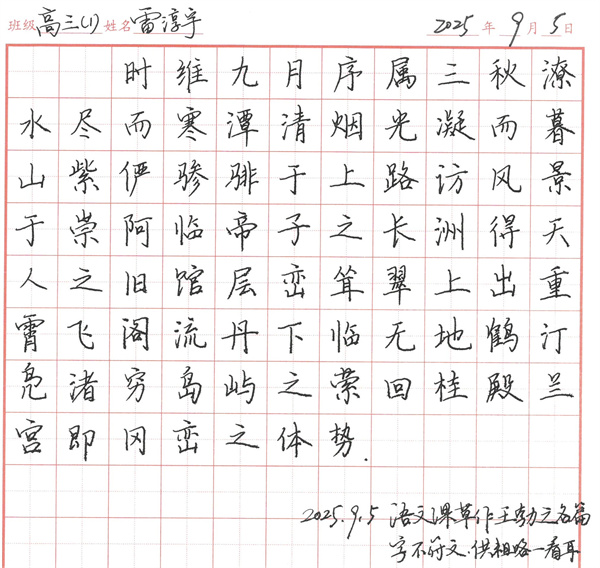 班级 高三(1) 姓名 雷淳宇 2025 年 9 月 5 日
时维九月序属三秋潦
水尽而寒潭清烟光凝而暮
山紫俨骖騑于上路访风景
于崇阿临帝子之长洲得天
人之旧馆层峦耸翠上出重
霄飞阁流丹下临无地鹤汀
凫渚穷岛屿之萦回桂殿兰
宫即冈峦之体势.
2025.9.5 语文课草作王勃之名篇
字不符文.供粗略一看耳